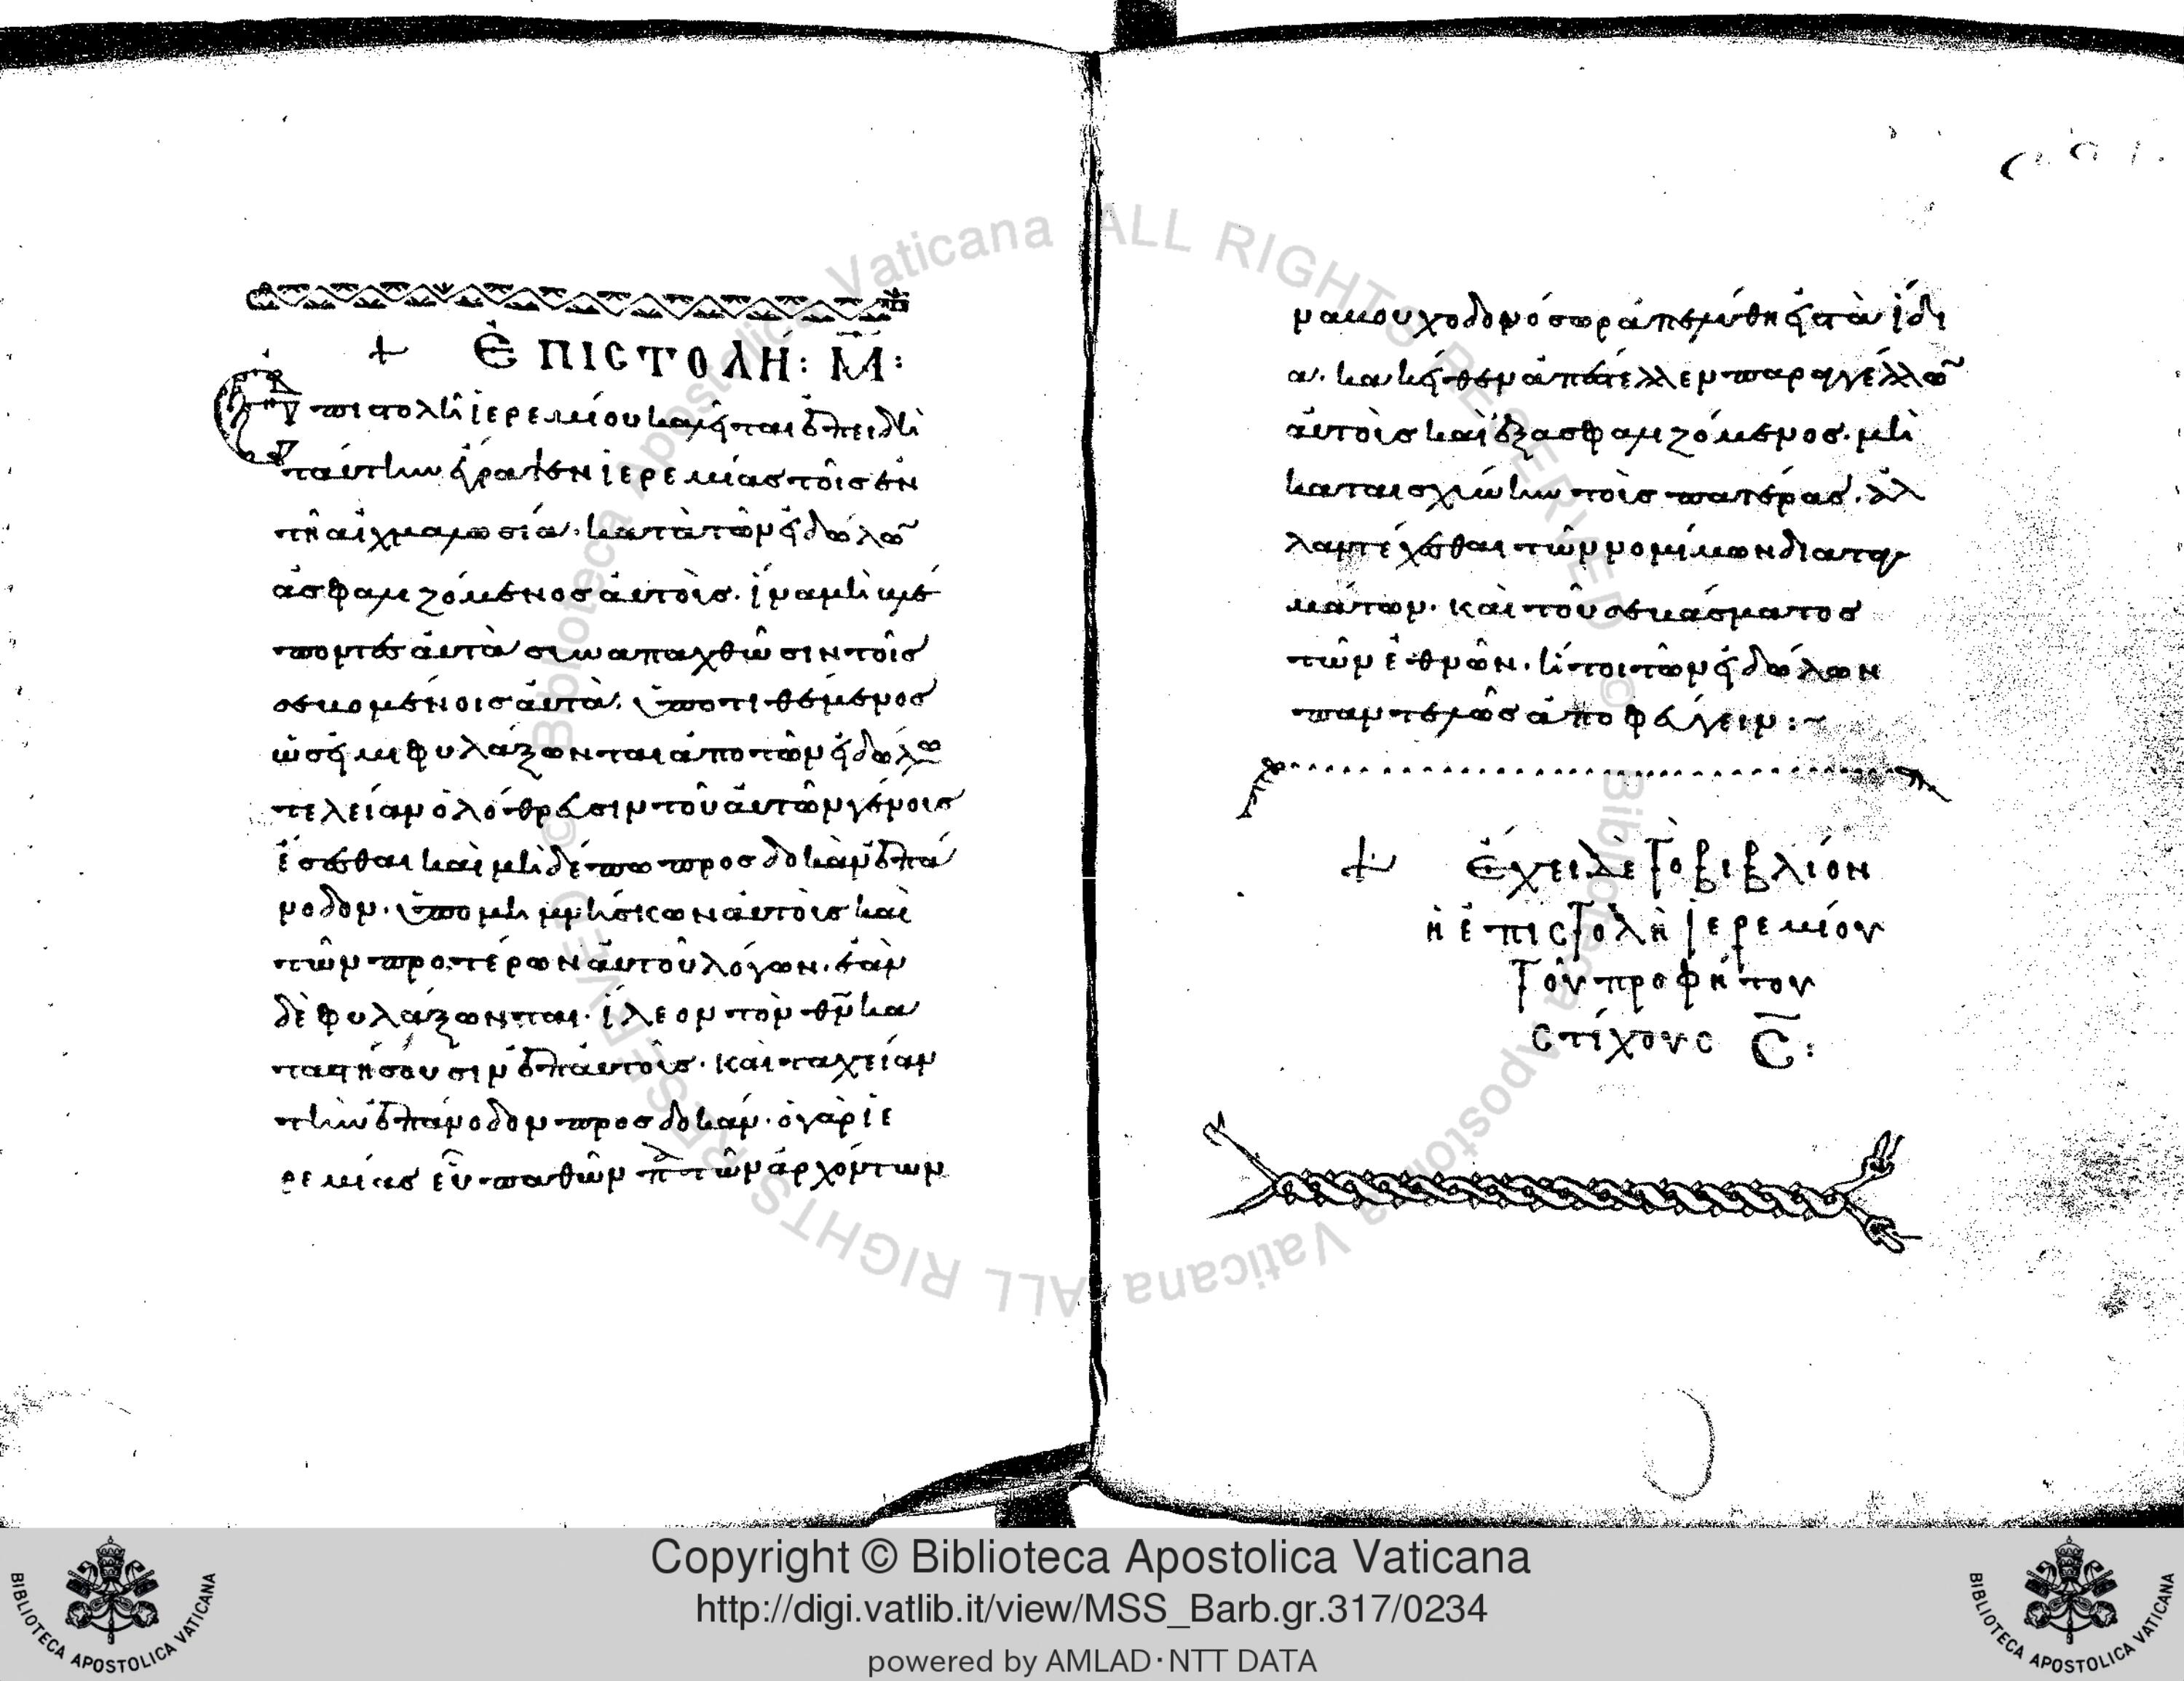 + ἘΠΙCΤΟΛΗ: Μ̅:
Ἐπιστολὴ ἱερεμίου καλεῖται ἐπειδὴ
ταύτην ἔγραψεν ἱερεμίας τοῖς ἐν
τῆ αἰχμαλωσία. κατὰ τῶν εἰδώλω̅
ἀσφαλιζόμενος αὐτοὺς. ἵνα μὴ
αὐτὰ συναπαχθῶσιν τοῖς
σεβομένοις αὐτὰ. ὑποτιθέμενος
ὡς εἰ μὴ φυλάξωνται ἀπο τῶν εἰδώλω
τελείαν ὀλόθρευσιν τοῦ αὐτῶν γένους
ἔσεσθαι καὶ μὴδέπω προσδοκᾶν ἐπά
νοδον. ὑπομιμνήσκων αὐτοὺς καὶ
τῶν προτέρων αὐτοῦ λόγων. ἐὰν
δὲ φυλάξωνται. ἵλεον τὸν θν̅ κα
ἐπ αὐτοῖς. καὶ ταχείαν
τὴν ἐπάνοδον προσδοκᾶν. ὁ γὰρ ἱε
ρεμίας εὖ παθὼν τῶν ἀρχόντων
εἰς τὰ ἴδι
α. κακεῖθεν ἀπέστελλεν παραγγέλλω̅
αὐτοῖς καὶ ἐξασφαλιζόμενος. μὴ
καταισχύνην τοὺς πατέρας. ἀλ
λ ἀντέχεσθαι τῶν νομίμων διαταγ
μάτων. καὶ τοῦ σεβάσματος
τῶν ἐθνῶν. ἤτοι τῶν εἰδώλων
παντελῶς ἀποφεύγειν:~
+ ἔχει δὲ τὸ βιβλίον
ἡ ἐπιστολὴ ἱερεμίου
τοῦ προφήτου
στίχους C̅:
Copyright © Biblioteca Apostolica Vaticana
http://digi.vatlib.it/view/MSS_Barb.gr.317/0234
powered by AMLAD·NTT DATA
BIBLIOTECA APOSTOLICA VATICANA
BIBLIOTECA APOSTOLICA VATICANA